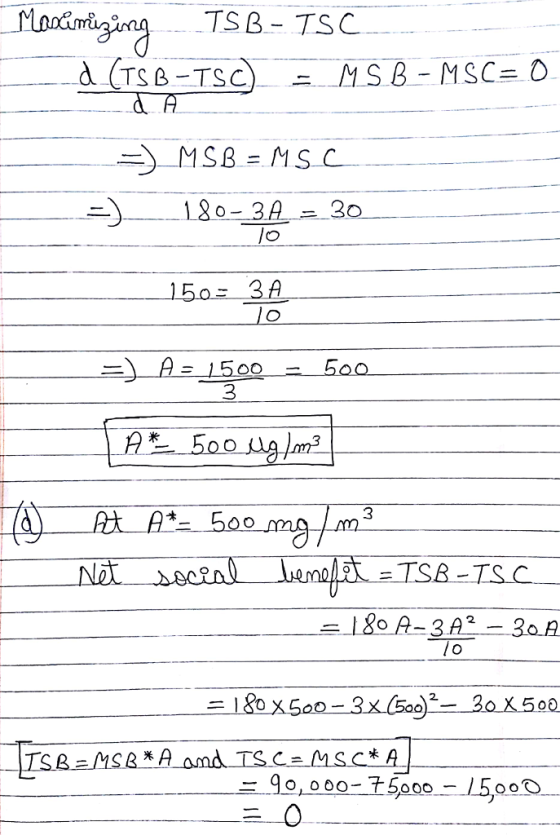 Maximizing TSB - TSC
d (TSB - TSC) / d A = MSB - MSC = 0
=) MSB = MSC
=) 180 - 3A/10 = 30
150 = 3A/10
=) A = 1500/3 = 500
A* = 500 ug/m³
(d) At A* = 500 mg/m³
Net social benefit = TSB - TSC
= 180 A - 3A²/10 - 30A
= 180 × 500 - 3 × (500)² - 30 × 500
[TSB = MSB * A and TSC = MSC * A]
= 90,000 - 75,000 - 15,000
= 0